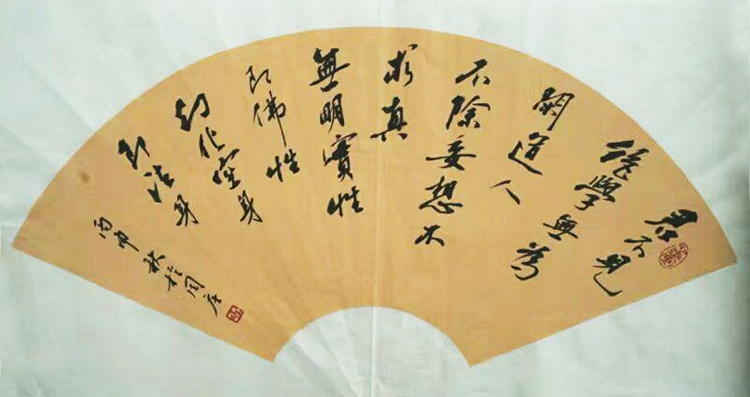 君不見
絕學無為
閑道人
不除妄想不
求真
無明實性
即佛性
幻化空身
即法身
丙申秋於周庄